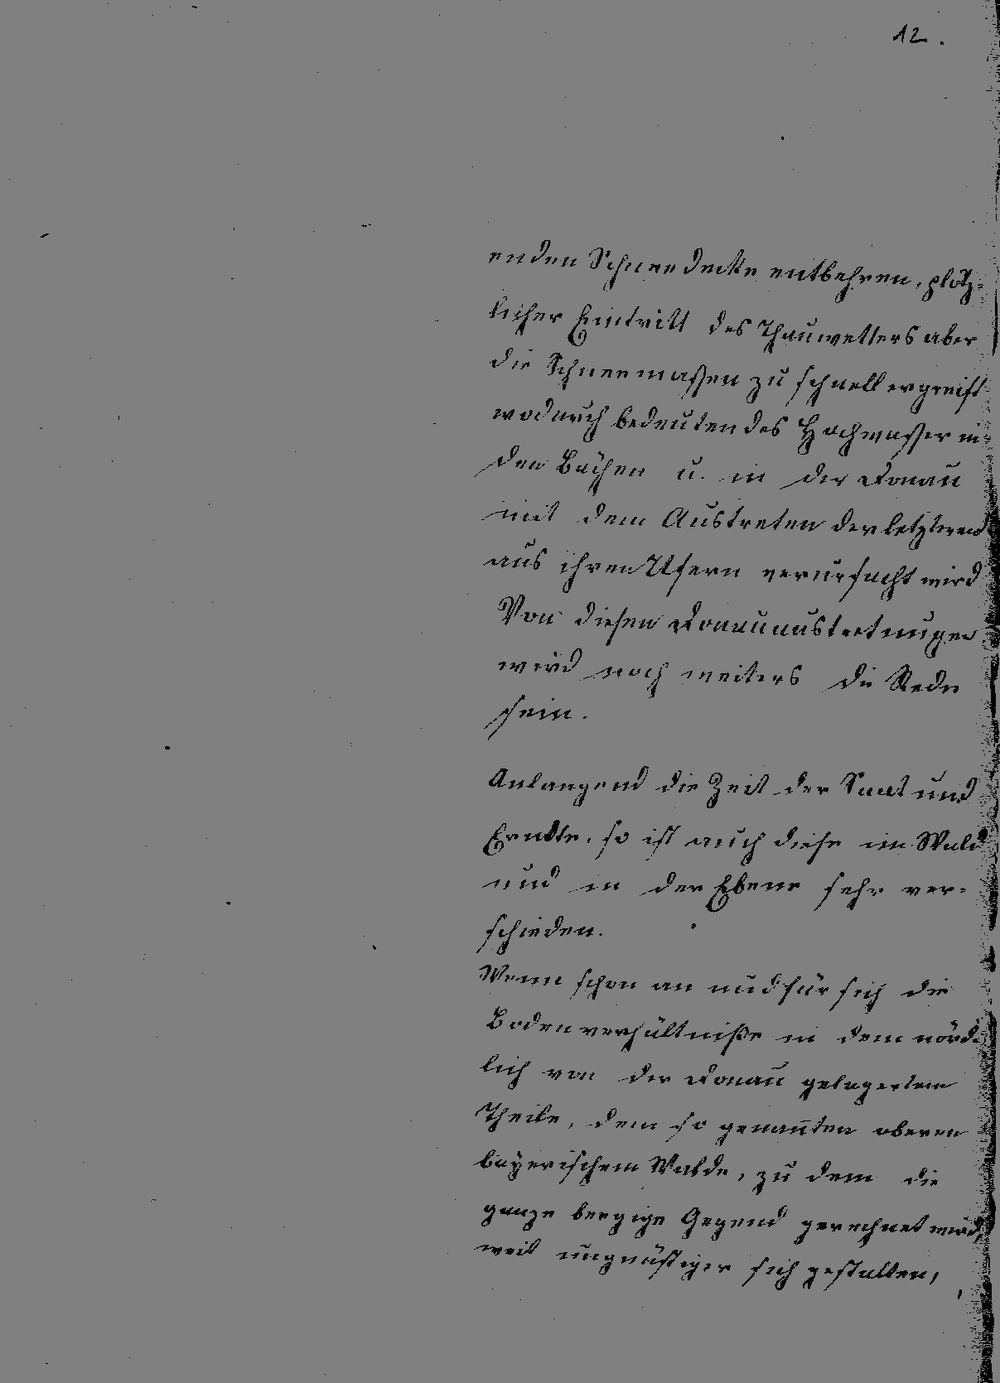 12.
enden Schneedecke entbehren, plötz-
licher Eintritt des Thauwetters aber
die Schneemaßen zu schnell ergreift
wodurch bedeutendes Hochwasser in
den Bächen u. in der Donau
mit dem Austreten der letzteren
aus ihren Ufern verursacht wird
Von diesen Donauaustretungen
wird noch weiters die Rede
sein.
Anlangend die Zeit der Saat und
Erndte, so ist auch diese im Wald
und in der Ebene sehr ver-
schieden.
Wenn schon an und für sich die
Bodenverhältniße in dem nörd-
lich von der Donau gelagerten
Theile, dem so genannten oberen
bayerischem Walde, zu dem die
ganze bergige Gegend gerechnet wird,
weit ungünstiger sich gestalten,